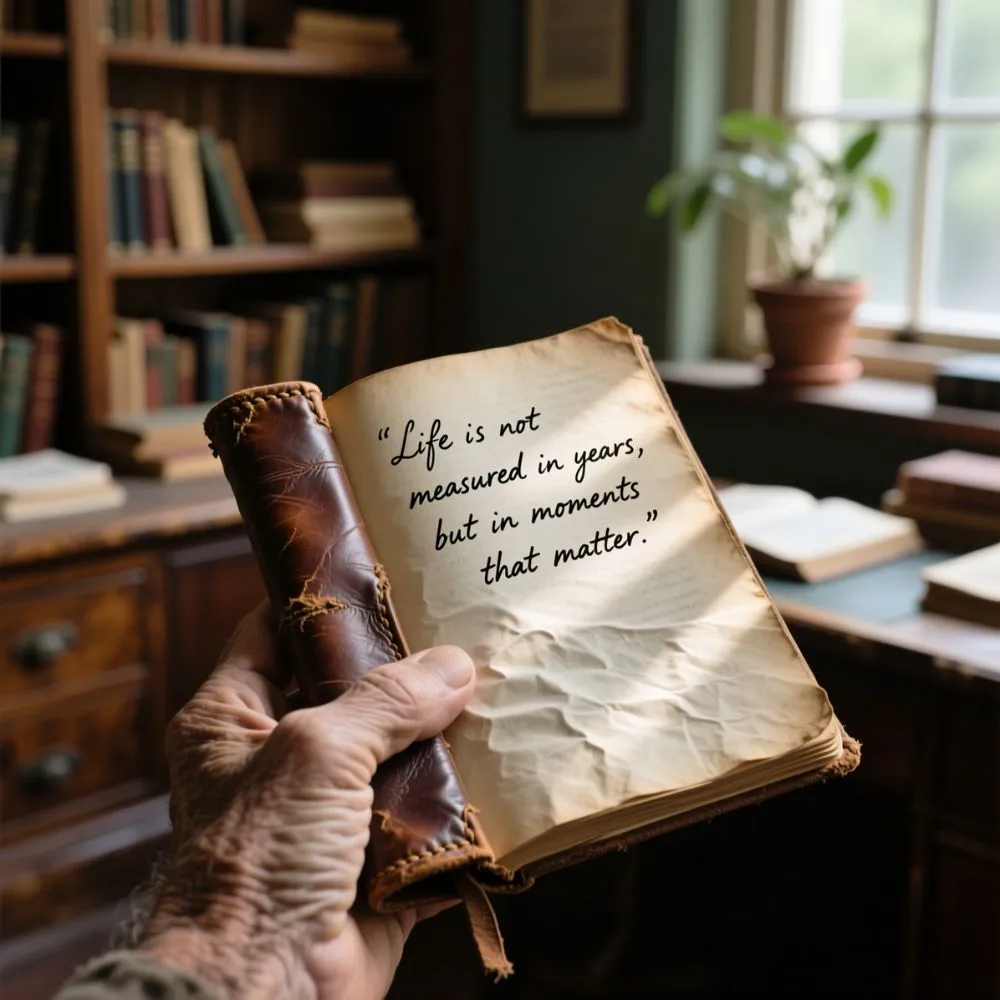 “Life is not
measured in years,
but in moments
that matter.”